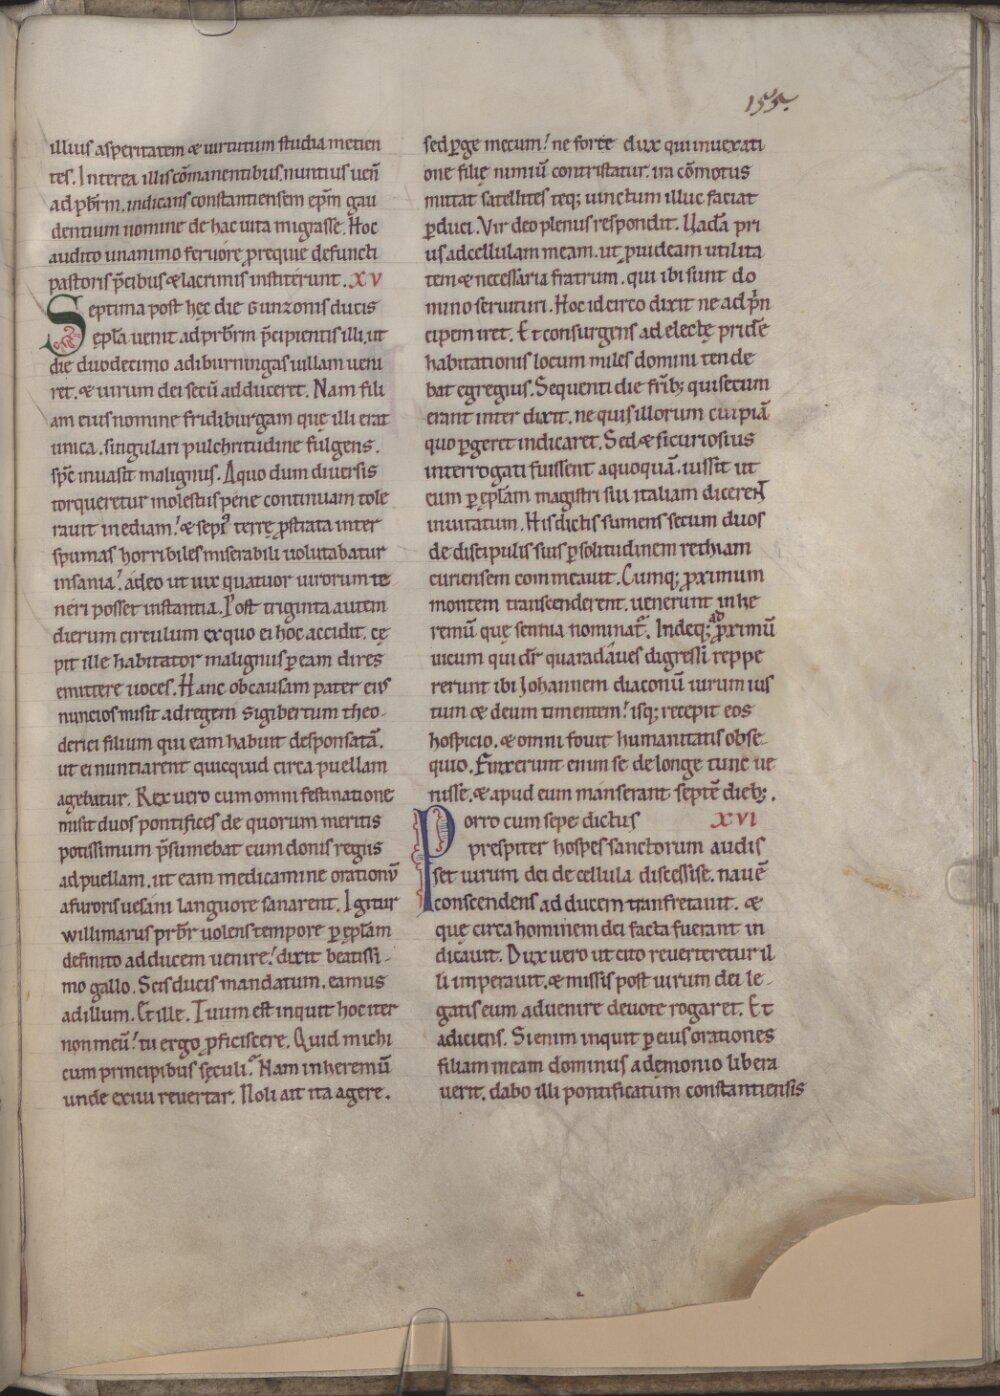 155.
illius asperitatem & uirtutum studia metien
tes. Interea illis cōmanentibus, nuntius uen̄
ad pb̄rm. indicans constantiensem ep̄m gau
dentium nomine de hac uita migrasse. Hoc
audito unanimo feruore p requie defuncti
pastoris p̄cibus & lacrimis institerunt. XV
Septima post hęc die Gunzonis ducis
ep̄la uenit ad prb̄rm p̄cipientis illi, ut
die duodecimo ad iburningas uillam ueni
ret. & uirum dei secū adduceret. Nam fili
am eius nomine fridiburgam quę illi erat
unica. singulari pulchritudine fulgens.
sp̄c inuasit malignus. A quo dum diuersis
torqueretur molestiis pene continuam tole
rauit inediam. & sepi terrę pstrata inter
spumas horribiles miserabili uolutabatur
insania. adeo ut uix quatuor uirorum te
neri posset instantia. Post triginta autem
dierum circulum ex quo ei hoc accidit. cę
pit ille habitator malignus p eam dires
emittere uoces. Hanc ob causam pater eius
nuncios misit ad regem sigibertum theo-
derici filium qui eam habuit desponsatā.
ut ei nuntiarent quicquid circa puellam
agebatur. Rex uero cum omni festinatione
misit duos pontifices de quorum meritis
potissimum p̄sumebat cum donis regiis
ad puellam. ut eam medicamine orationū
a furoris uesani languore sanarent. Igitur
willimarus prb̄r uolens tempore p ep̄lam
definito ad ducem uenire. dixit beatissi-
mo gallo. Scis ducis mandatum. eamus
ad illum. Et ille. Tuum est inquit hoc iter
non meū. tu ergo pficiscere. Quid michi
cum principibus sęculi. Nam in heremū
unde exiui reuertar. Noli ait ita agere.
sed pge mecum. ne forte dux qui inuexati
one filię nimiū contristatur. ira cōmotus
mittat satellites teq; uinctum illuc faciat
pduci. Vir deo plenus respondit. Uadā pri
us ad cellulam meam. ut puideam utilita
tem & necessaria fratrum. qui ibi sunt do
mino seruituri. Hoc idcirco dixit ne ad p̄n
cipem iret. Et consurgens ad electę pridē
habitationis locum miles domini tende
bat egregius. Sequenti die fr̄ib; qui secum
erant inter dixit. ne quis illorum cuipiā
quo pgeret indicaret. Sed & si curiosius
interrogati fuissent a quoquā. iussit ut
eum p ep̄lam magistri sui italiam dicerent
inuitatum. His dictis sumens secum duos
de discipulis suis p solitudinem rethiam
curiensem commeauit. Cumq; pximum
montem transcenderent. uenerunt in he
remū que sennia nominat. Indeq; ad pximū
uicum qui dr̄ quaradaues digressi reppe
rerunt ibi Iohannem diaconū uirum ius
tum & deum timentem. isq; recepit eos
hospicio. & omni fouit humanitatis obse-
quio. Finxerunt enim se de longe tunc ue
nisse. & apud eum manserant septē dieb;.
Porro cum sepe dictus XVI
prespiter hospes sanctorum audis
set uirum dei de cellula discessise. nauē
conscendens ad ducem transfretauit. &
quę circa hominem dei facta fuerant in
dicauit. Dux uero ut cito reuerteretur il
li imperauit. & missis post uirum dei le-
gatis eum aduenire deuote rogaret. Et
adiciens. Si enim inquit p eius orationes
filiam meam dominus a demonio libera
uerit. dabo illi pontificatum constantiensis